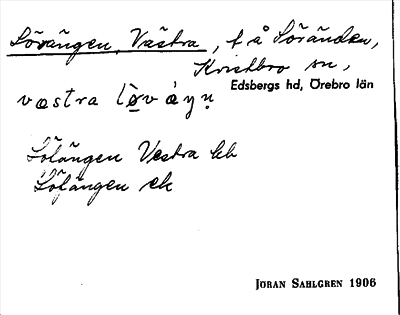 Lövängen, Västra, t å Löränden,
Knistbro sn,
Edsbergs hd, Örebro län
vastra lòváŋn
Lölängen Vestra hb
Löfängen ek
JÖRAN SAHLGREN 1906